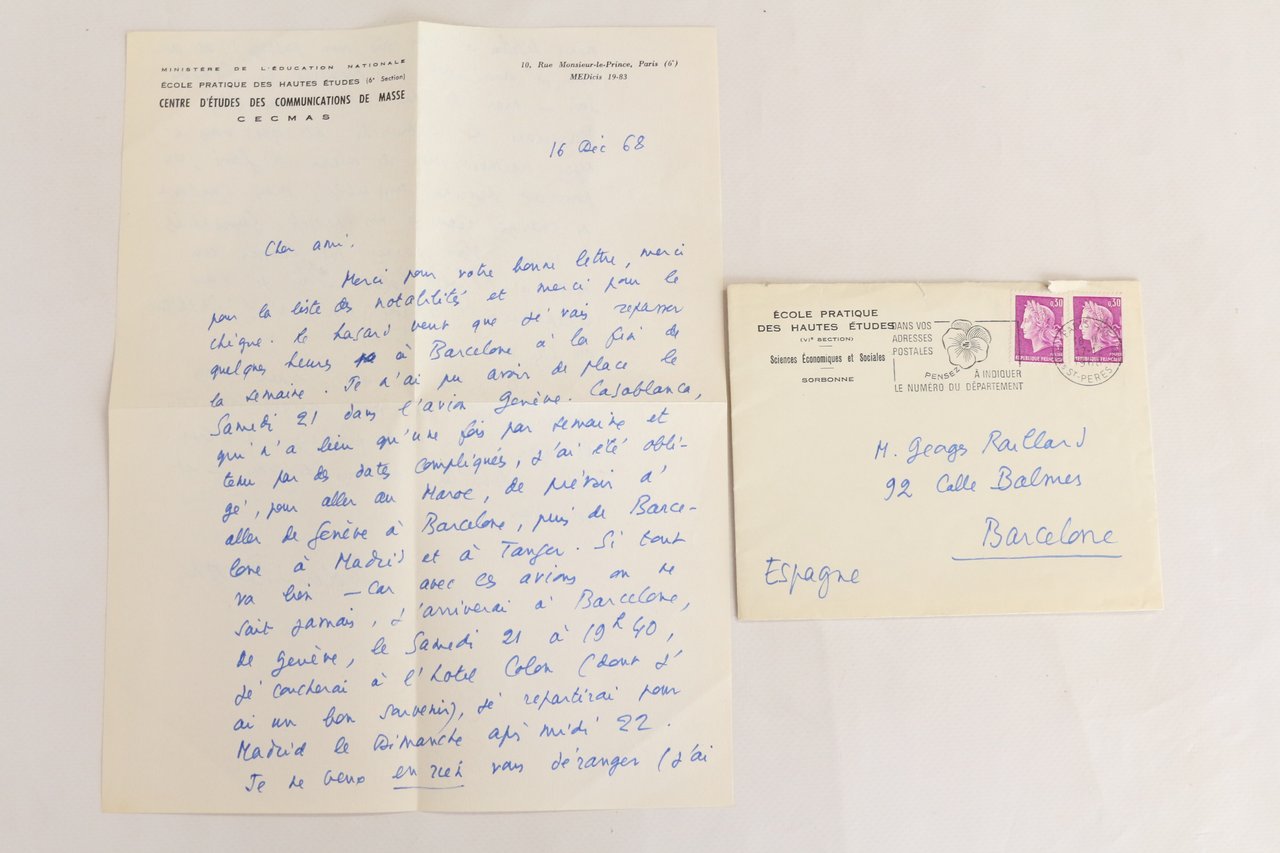 MINISTÈRE DE L'ÉDUCATION NATIONALE
ÉCOLE PRATIQUE DES HAUTES ÉTUDES (6e Section)
CENTRE D'ÉTUDES DES COMMUNICATIONS DE MASSE
CECMAS
10, Rue Monsieur-le-Prince, Paris (6e)
MEDicis 19-83
16 Déc 68
Cher ami.
Merci pour votre bonne lettre, merci
pour la liste des notabilités et merci pour le
chèque. Le hasard veut que je vais repasser
quelques heures à Barcelone à la fin de
la semaine. Je n'ai pu avoir de place le
Samedi 21 dans l'avion Genève-Casablanca,
qui n'a lieu qu'une fois par semaine et
tenu par des dates compliqués, j'ai été obli-
gé, pour aller au Maroc, de prévoir d'
aller de Genève à Barcelone, puis de Barce-
lone à Madrid et à Tanger. Si tout
va bien — car avec ces avions on ne
sait jamais, j'arriverai à Barcelone,
de Genève, le Samedi 21 à 19h40,
je coucherai à l'hotel Colon (dont j'
ai un bon souvenir), je repartirai pour
Madrid le Dimanche après midi 22.
Je ne veux en rien vous déranger (j'ai
ÉCOLE PRATIQUE
DES HAUTES ÉTUDES
(VIe SECTION)
Sciences Économiques et Sociales
SORBONNE
DANS VOS
ADRESSES
POSTALES
PENSEZ
À INDIQUER
LE NUMÉRO DU DÉPARTEMENT
0,30
RÉPUBLIQUE FRANÇAISE
0,30
RÉPUBLIQUE FRANÇAISE
ST-PERES
M. Georges Raillard
92 Calle Balmes
Barcelone
Espagne